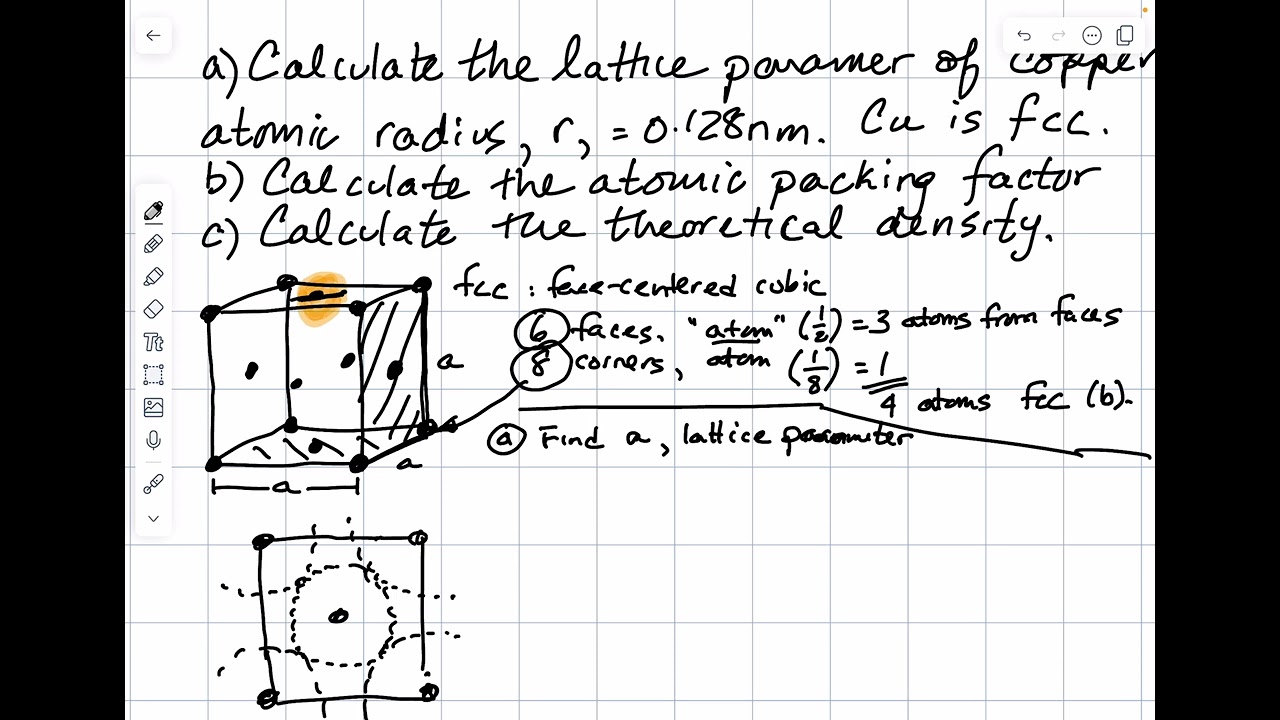 a) Calculate the lattice paramer of copper
atomic radius, r, = 0.128nm. Cu is fcc.
b) Calculate the atomic packing factor
c) Calculate the theoretical density.
fcc : face-centered cubic
6 faces. "atom" (1/2) = 3 atoms from faces
8 corners, atom (1/8) = 1
4 atoms fcc (b).
a Find a, lattice parameter
a
a
a
Tt